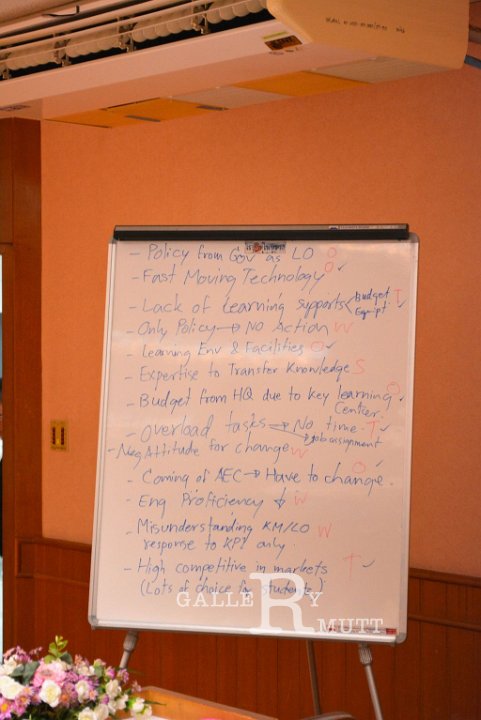 - Policy from Gov as LO O
- Fast Moving Technology O ✓
- Lack of Learning supports < Budget T
Equipt ✓
- Only Policy → No Action W
- Learning Env & Facilities O ✓
- Expertise to Transfer Knowledge S
- Budget from HQ due to key learning O ✓
Center.
- Overload tasks → No time T ✓
→ job assignment
- Neg Attitude for change W
- Coming of AEC → Have to change. O ✓
- Eng Proficiency ↓ W
- Misunderstanding KM/LO W
response to KPI only
- High competitive in markets T ✓
(Lots of choice for students)
GALLERY
RMUTT